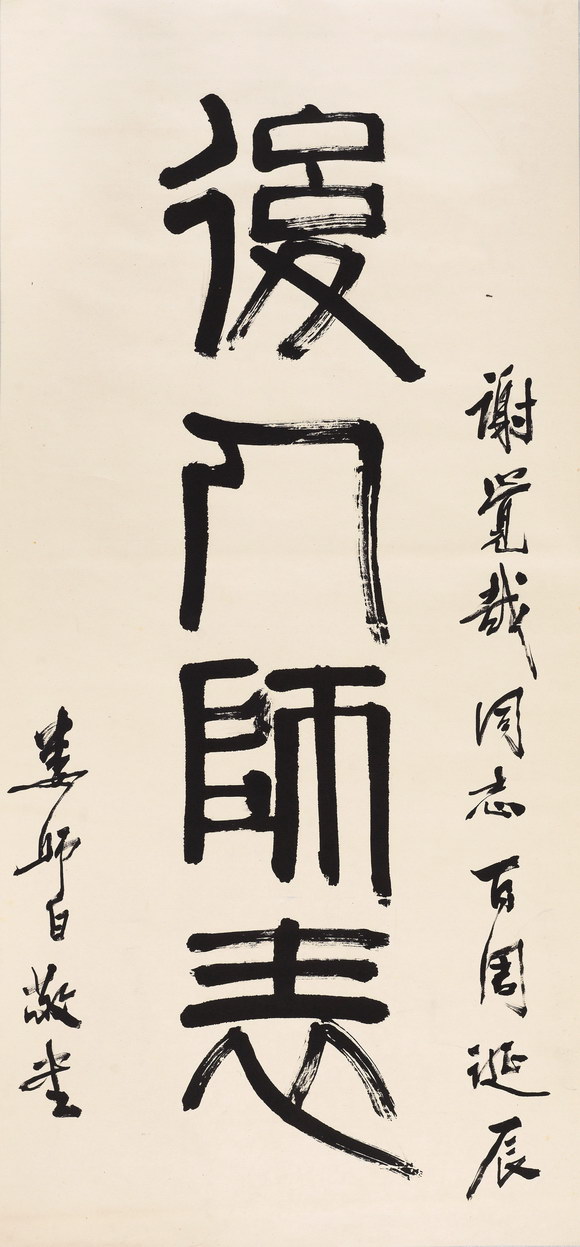 谢觉哉同志百周诞辰
後人師表
娄师白敬书